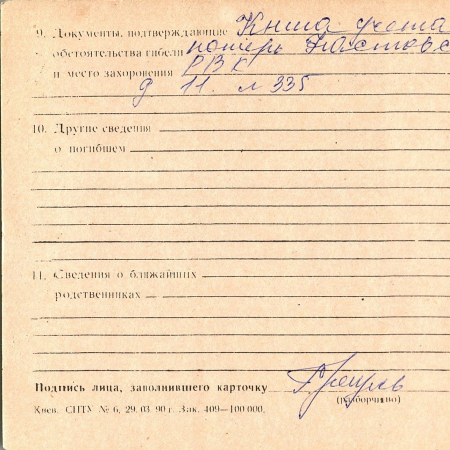 9. Документы, подтверждающие Книга учета
обстоятельства гибели потерь Пастовс
и место захоронения РВК
д 11. л 335
10. Другие сведения
о погибшем
11. Сведения о ближайших
родственниках
Подпись лица, заполнившего карточку
(разборчиво)
Киев. СПТУ № 6, 29. 03. 90 г. Зак. 409—100 000.